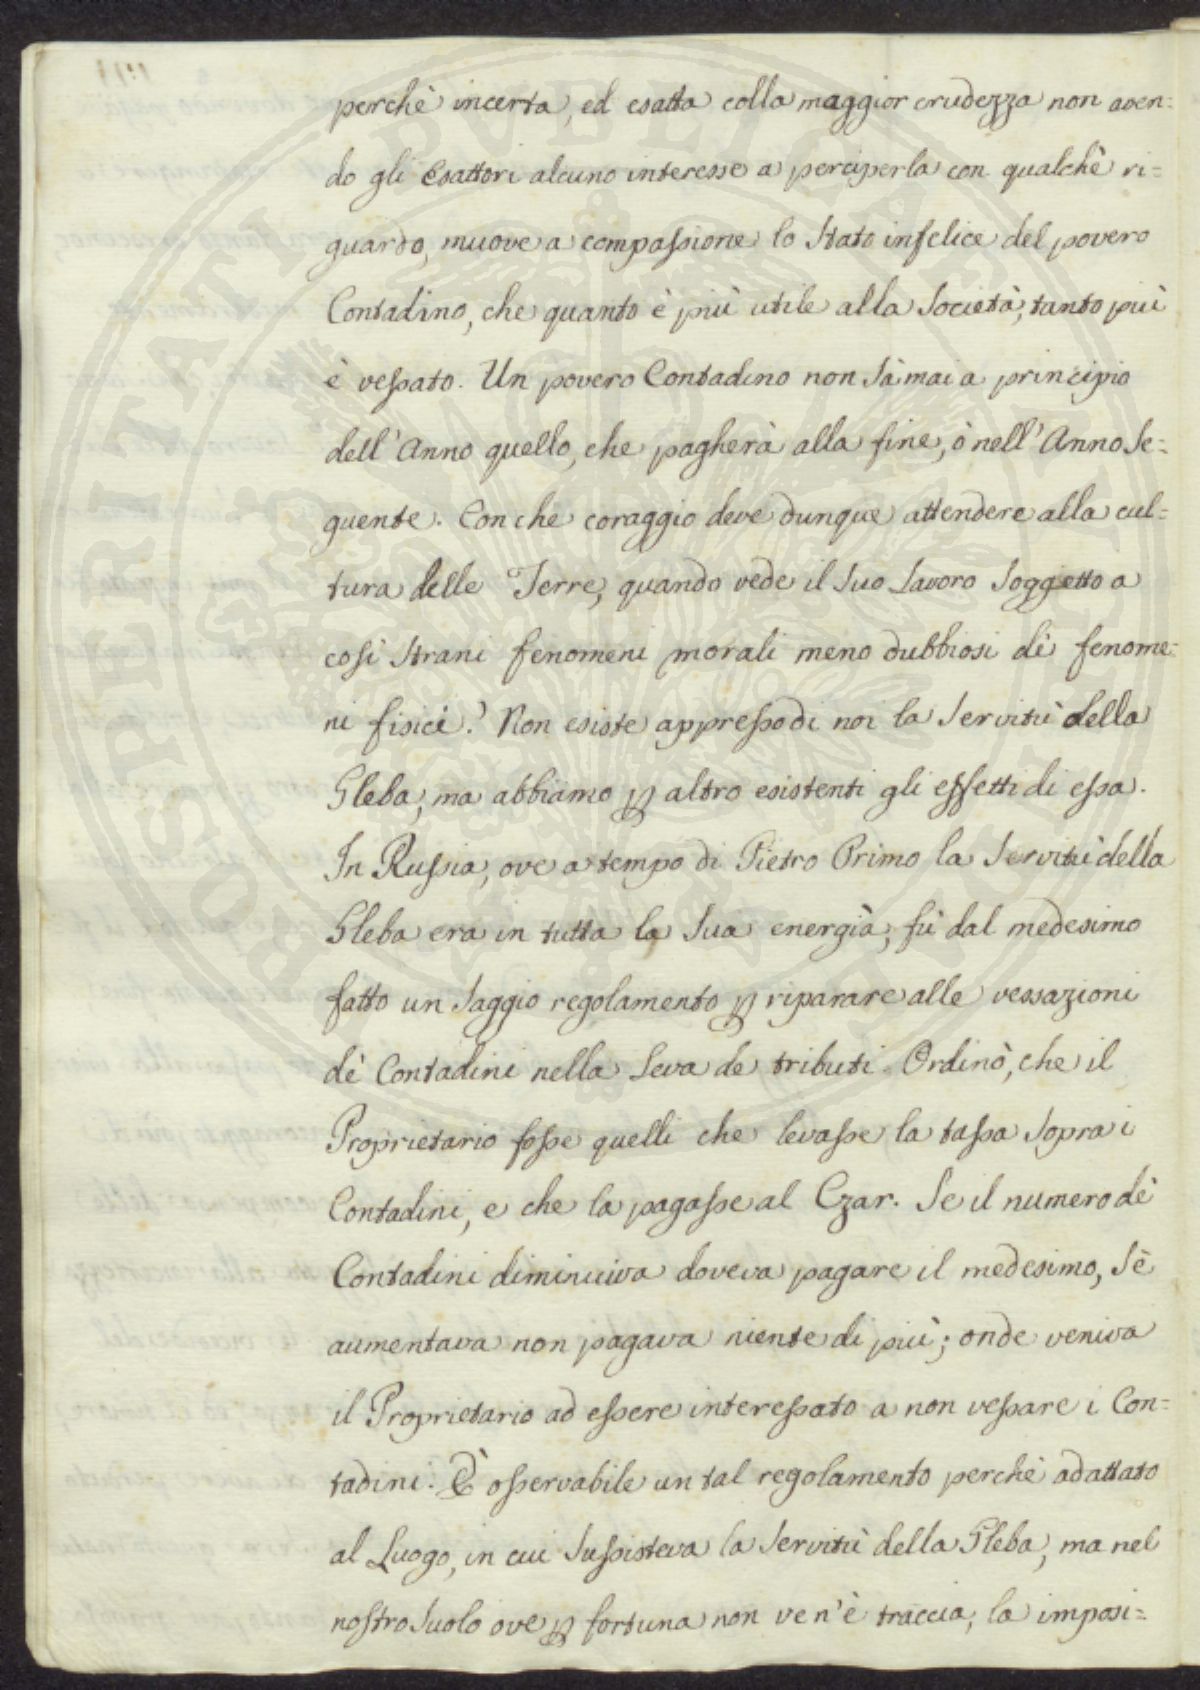 perchè incerta, ed esatta colla maggior crudezza non aven=
do gli Esattori alcuno interesse a perciperla con qualchè ri=
guardo, muove a compassione lo Stato infelice del povero
Contadino, che quanto è più utile alla Società, tanto più
è vessato. Un povero Contadino non sà mai a principio
dell'Anno quello, che pagherà alla fine, ò nell'Anno Se=
guente. Con che coraggio deve dunque attendere alla cul=
tura delle Terre, quando vede il Suo Lavoro Soggetto a
così Strani fenomeni morali meno dubbiosi dè fenome=
ni fisici? Non esiste appresso di noi la Servitù della
Gleba, ma abbiamo p altro esistenti gli effetti di essa.
In Russia, ove a tempo di Pietro Primo la Servitù della
Gleba era in tutta la Sua energià, fù dal medesimo
fatto un Saggio regolamento p riparare alle vessazioni
dè Contadini nella Leva de tributi. Ordinò, che il
Proprietario fosse quelli che levasse la tassa Sopra i
Contadini, e che la pagasse al Czar. Se il numero dè
Contadini diminuiva doveva pagare il medesimo, Sè
aumentava non pagava niente di più; onde veniva
il Proprietario ad essere interessato a non vessare i Con=
tadini. È osservabile un tal regolamento perchè adattato
al Luogo, in cui Sussisteva la Servitù della Gleba, ma nel
nostro Suolo ove p fortuna non ve n'è traccia, la imposi=
PROSPERITATI PUBLICAE